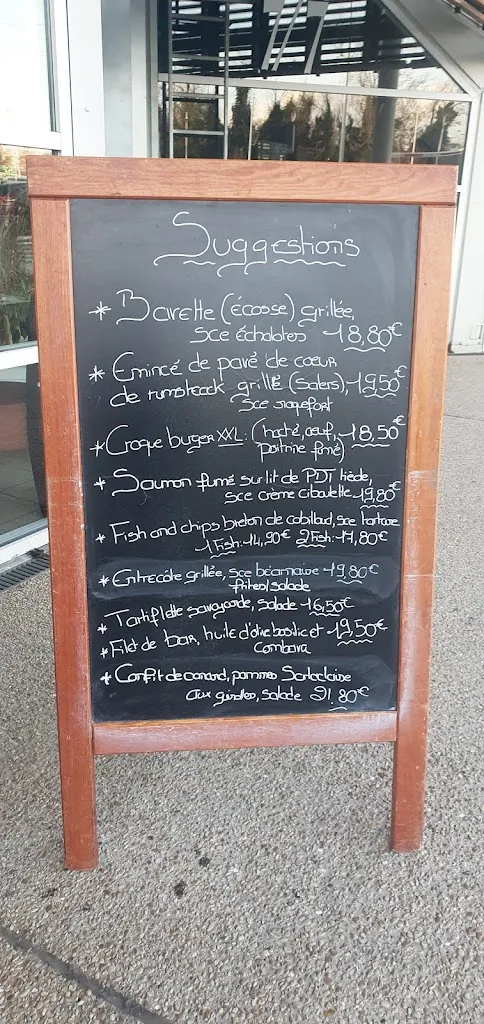 Suggestions
* Bavette (écosse) grillée,
sce échalotes 18,80€
* Emincé de pavé de coeur
de rumsteack grillé (Salers), 19,50€
Sce roquefort
* Croque burger XXL: (haché, oeuf, 18,50€
poitrine fumé)
* Saumon fumé sur lit de PDT tiède,
sce crème ciboulette 19,80€
* Fish and chips breton de cabillaud, sce tartare
1 Fish: 14,90€ 2 Fish: 17,80€
* Entrecôte grillée, sce béarnaise 19,80€
frites/salade
* Tartiflette savoyarde, salade 16,50€
* Filet de bar, huile d'olive basilic et 19,50€
Combava
* Confit de canard, pommes Sarladaise
aux girolles, salade 21,80€